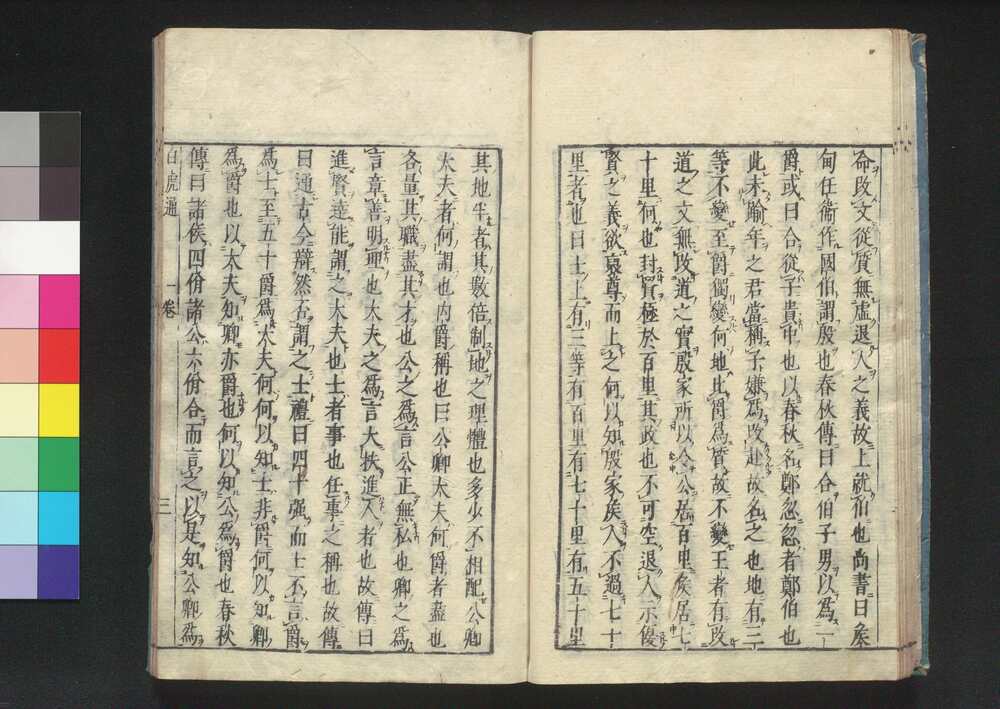 命改文從質無虛退人之義故上就伯也尚書曰矦
甸任衞作國伯謂殷也春秋傳曰合伯子男以爲一
爵或曰合從子貴中也以春秋名鄭忽忽者鄭伯也
此未踰年之君當稱子嫌爲改赴故名之也地有三
等不變至爵獨變何地比爵爲質故不變王者有改
道之文無改道之實殷家所以令公居百里矦居七
十里何也封賢極於百里其政也不可空退人示優
賢之義欲裒尊而上之何以知殷家矦人不過七十
里者也曰士上有三等有百里有七十里有五十里
其地半者其數倍制地之理體也多少不相配公卿
大夫者何謂也內爵稱也曰公卿大夫何爵者盡也
各量其職盡其才也公之爲言公正無私也卿之爲
言章善明理也大夫之爲言大扶進人者也故傳曰
進賢達能謂之大夫也士者事也任事之稱也故傳
曰通古今辯然否謂之士禮曰四十强而士不言爵
爲士至五十爵爲大夫何何以知士非爵何以知卿
爲爵也以大夫知卿亦爵也何以知公爲爵也春秋
傳曰諸矦四佾諸公六佾合而言之以是知公卿爲
白虎通 一卷 三